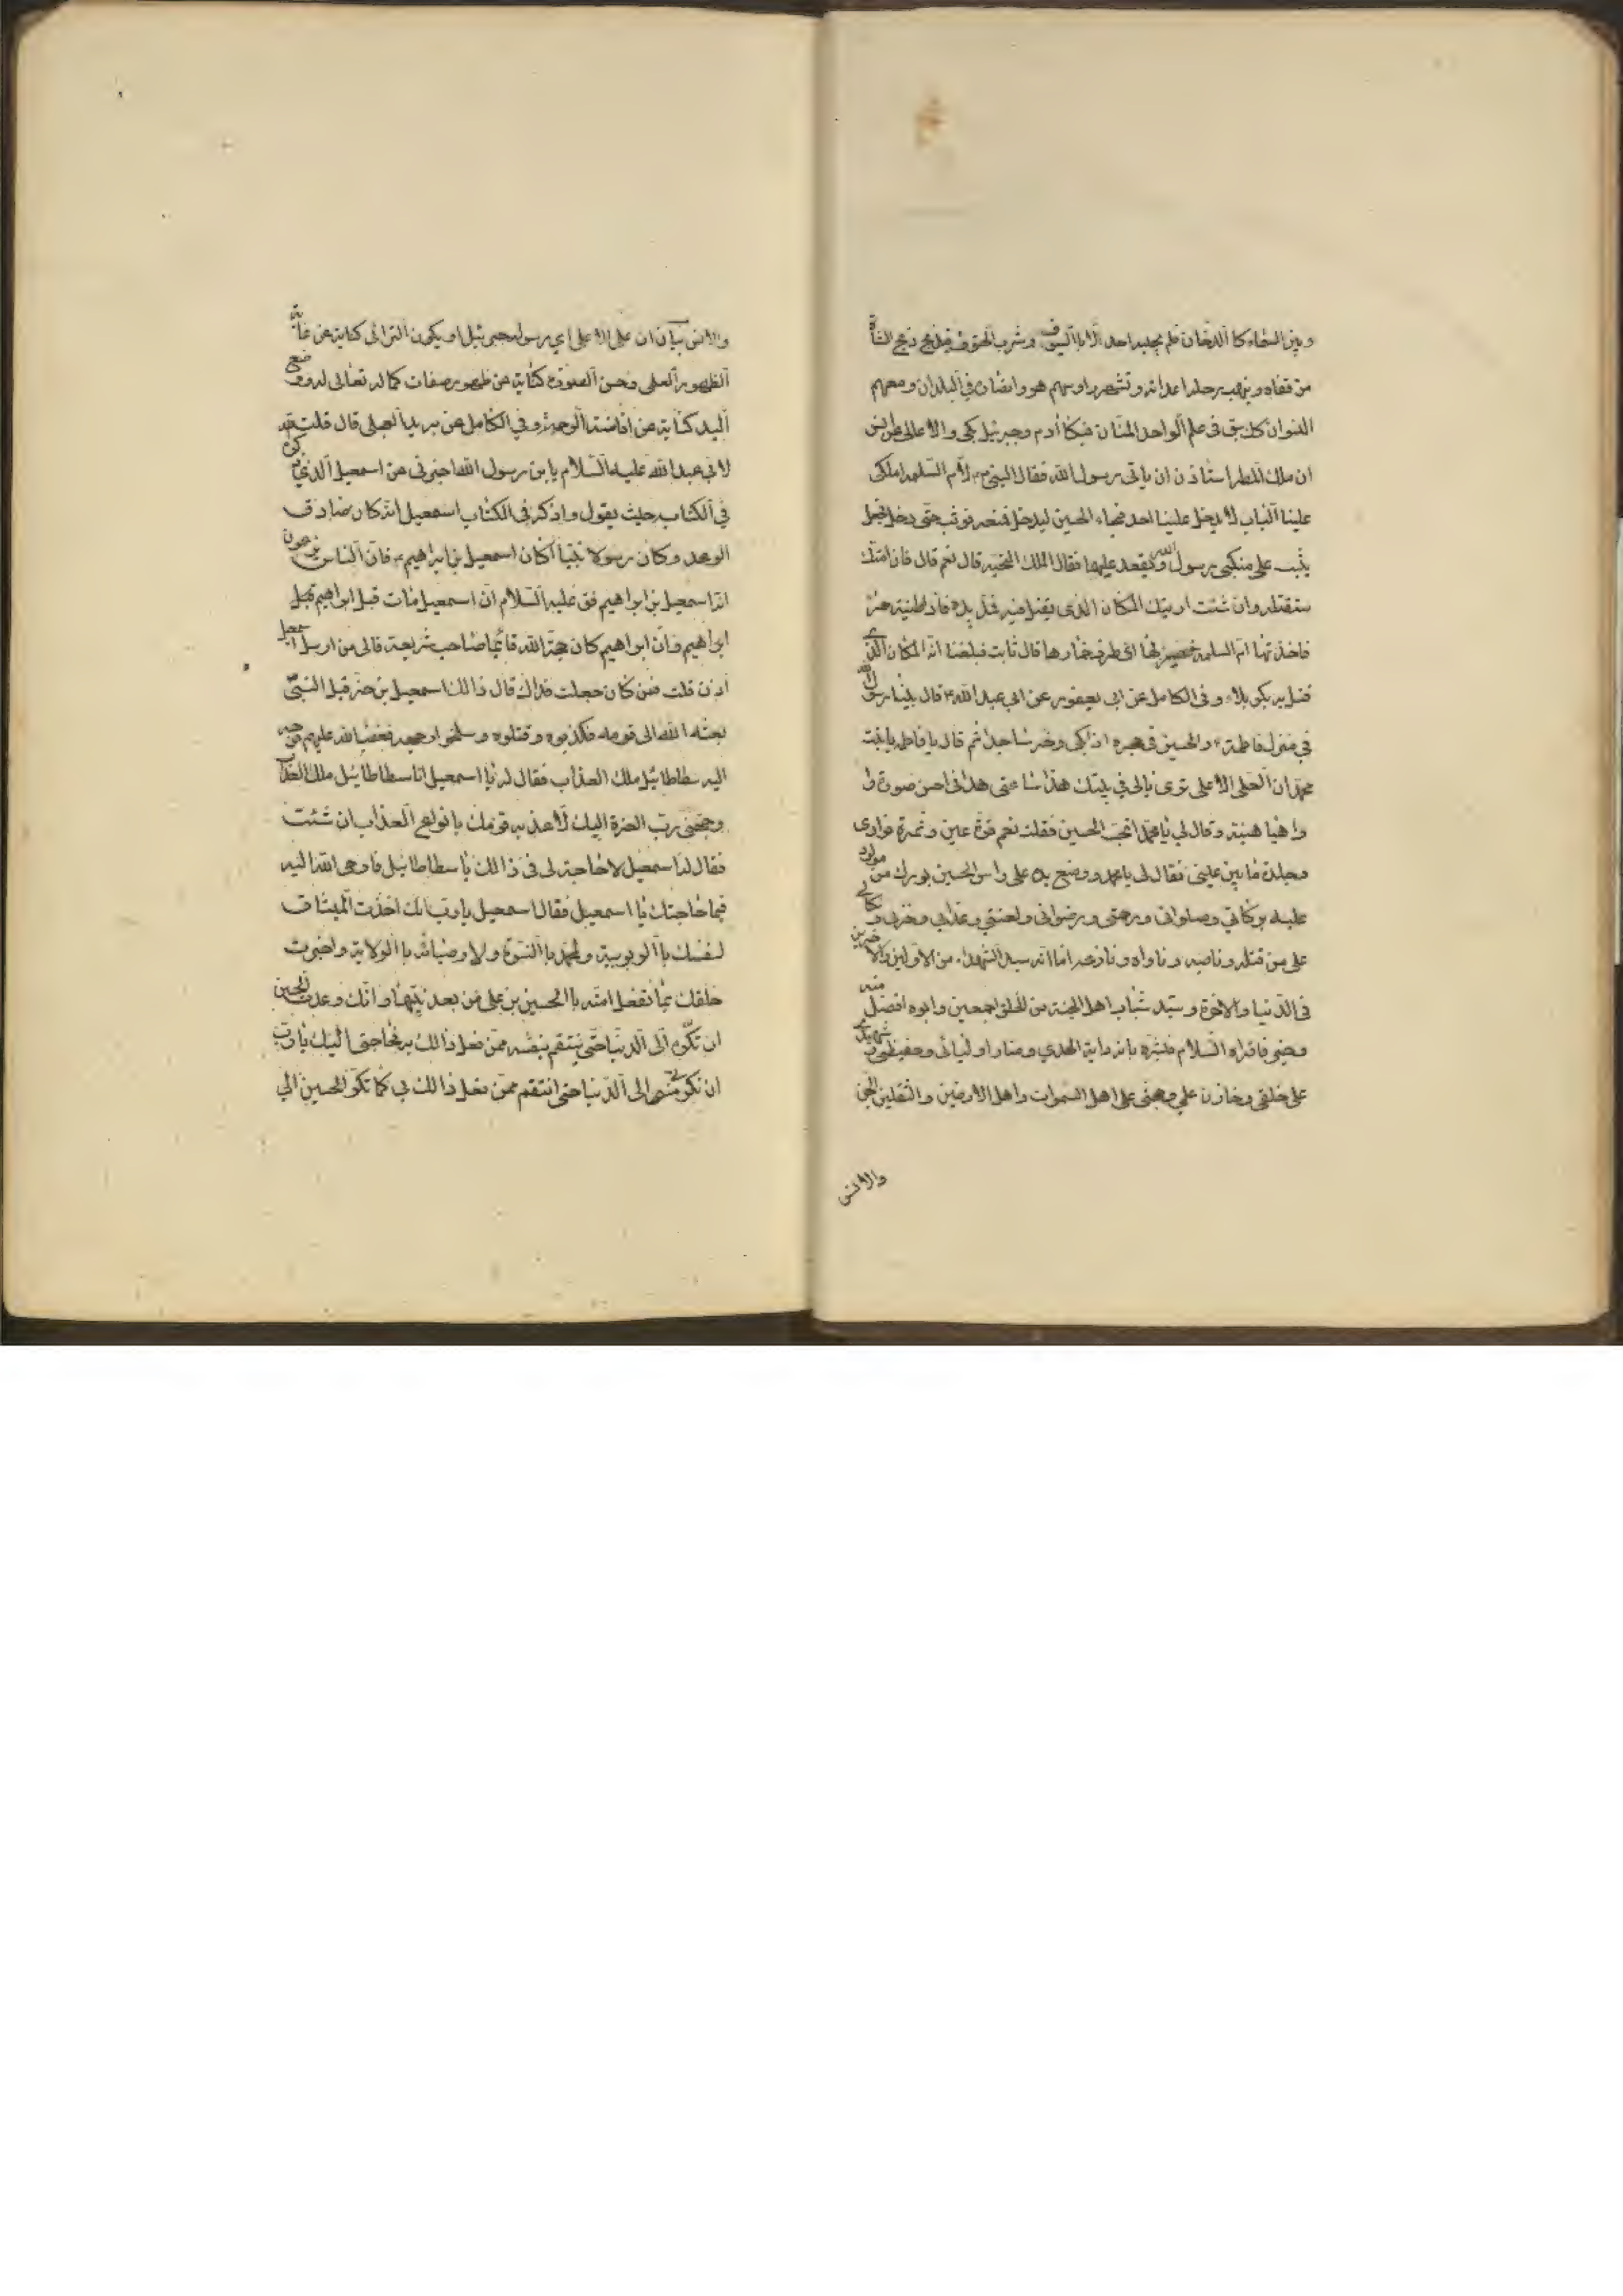 وبين السماء كا الدخان فلم يجبه احد الا با السيوف وشرب الحتوف فيذبح ذبح الشاة
من قفاه وينهب رحله اعدائه وتشهر راوسهم هو وانصاره في البلدان ومعهم
النسوان كك سبق في علم الواحد المنان فبكا ادم وجبرئيل بكى والاعالى
ان ملك المطر استاذن ان ياتى رسول الله فقال النبي لام السلمه املكى
علينا الباب لا يدخل علينا احد فجاء الحسين ليدخل فمنعه فوثب حتى دخل فجعل
يثب على منكبى رسول الله ويقعد عليها فقال الملك اتحبه قال نعم قال فان امتك
ستقتله وان شئت اريتك المكان الذى يقتل فيه فمد يده فاذ طينة حمرآ
فاخذتها ام السلمه فصيرتها الى طرف خمارها قال ثابت فبلغنا انه المكان الذي
قتل به بكربلاء وفى الكامل عن ابى يعفور عن ابي عبد الله ع قال بينا رسول الله
في منزل فاطمة ع والحسين في حجره اذ بكى وخر ساجدا ثم قال يا فاطمه يا بنت
محمد ان العلى الاعلى ترى يالى في بيتك هذا ساعتى هذا في احسن صورة وا
واهيا هيئة وقال لي يا محمد اتحب الحسين فقلت نعم قرة عين وثمرة فوادى
وجلدة ما بين عينى فقال لى يا محمد ووضع يده على راس الحسين بورك من مولود
عليه بركاتي وصلواتى ورحمتى ورضوانى ولعنتي وعذابي وخزيى ونكالي
على من قتله وناصبه وناواه ونازعه اما انه سيد الشهداء من الاولين والاخرين
في الدنيا والاخرة وسيد شباب اهل الجنة من الخلق اجمعين وابوه افضل منه
وخير فاقراه السلام وبشره بانه راية الهدي ومنار اوليائى وحفيظى وشهيدي
على خلقى وخازن علمي وحجتى على اهل السموات واهل الارضين والثقلين الجن
والانس
والانس بيان ان على الاعلى اي رسول جبرئيل او يكون الترائى كناية عن غاية
الظهور العلمى وحسن الصورة كناية عن ظهور صفات كماله تعالى له ووضع
اليد كناية عن افاضة الرحمة وفي الكامل عن بريد العجلى قال قلت
لابى عبد الله عليه السلام يا بن رسول الله اخبرنى عن اسمعيل الذي ذكره
في الكتاب حيث يقول واذكر فى الكتاب اسمعيل انه كان صادق
الوعد وكان رسولا نبيا اكان اسمعيل بن ابراهيم ع فان الناس يزعمون
انه اسمعيل بن ابراهيم فق عليه السلام ان اسمعيل مات قبل ابراهيم قبل
ابراهيم وان ابراهيم كان حجة الله قائما صاحب شريعة فالى من ارسل اسمعيل
اذن قلت فمن كان جعلت فداك قال ذالك اسمعيل بن حزقيل النبي
بعثه الله الى قومه فكذبوه وقتلوه وسلخوا وجهه فغضب الله عليهم فوجه
اليه سطاطائيل ملك العذاب فقال له يا اسمعيل انا سطاطائيل ملك العذاب
وجهنى رب العزة اليك لاعذب قومك بانواع العذاب ان شئت
فقال له اسمعيل لا حاجة لى فى ذالك يا سطاطائيل فاوحى الله اليه
فما حاجتك يا اسمعيل فقال اسمعيل يا رب انك اخذت الميثاق
لنفسك با الربوبية ولمحمد با النبوة ولاوصيائه با الولاية واخبرت
خلقك بما تفعل امته با الحسين بن على من بعد نبيها وانك وعدت الحسين
ان تكره الى الدنيا حتى ينتقم بنفسه ممن فعل ذالك به فحاجتى اليك يا رب
ان تكرني الى الدنيا حتى انتقم ممن فعل ذالك بي كما تكر الحسين الي